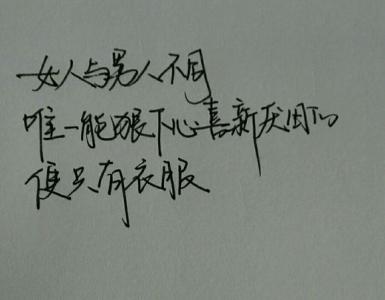 女人与男人不同
唯一能狠下心喜新厌旧的
便只有衣服